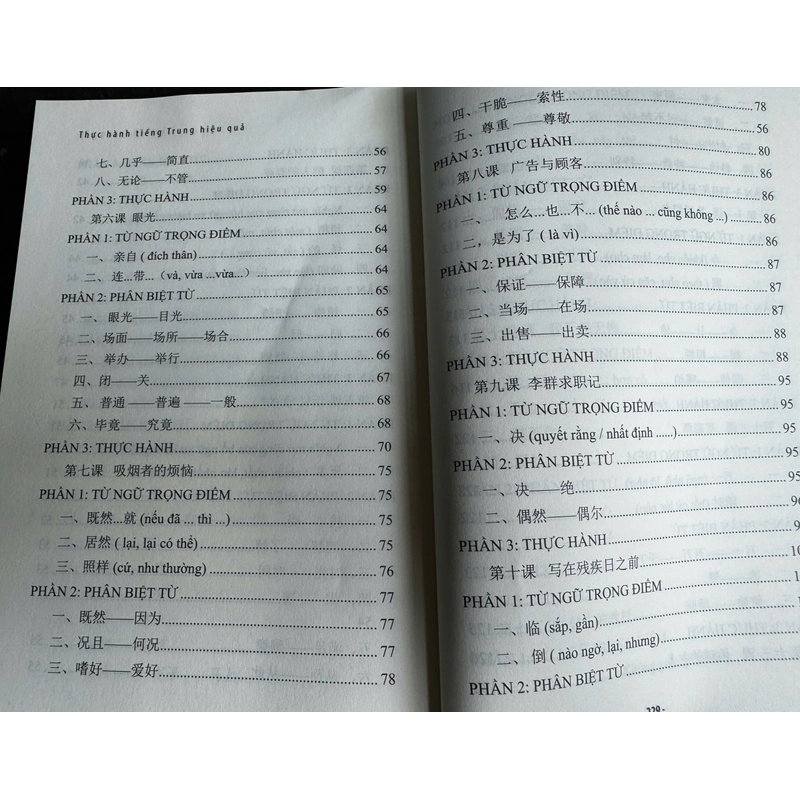 Thực hành tiếng Trung hiệu quả
七、几乎——简直 56
八、无论——不管 57
PHẦN 3: THỰC HÀNH 59
第六课 眼光 64
PHẦN 1: TỪ NGỮ TRỌNG ĐIỂM 64
一、 亲自 ( đích thân) 64
二、 连...带... (vả, vừa ...vừa...) 64
PHẦN 2: PHÂN BIỆT TỪ 65
一、 眼光——目光 65
二、 场面——场所——场合 66
三、 举办——举行 66
四、闭——关 67
五、 普通 ——普遍 ——一般 68
六、毕竟——究竟 68
PHẦN 3: THỰC HÀNH 70
第七课 吸烟者的烦恼 75
PHẦN 1: TỪ NGỮ TRỌNG ĐIỂM 75
一、既然...就 (nếu đã ... thì ...) 75
二、居然 ( lại, lại có thể) 75
三、照样 (cứ, như thường) 76
PHẦN 2: PHÂN BIỆT TỪ 77
一、既然——因为 77
二、况且——何况 77
三、嗜好——爱好 78
四、干脆——索性 78
五、尊重——尊敬 56
PHẦN 3: THỰC HÀNH 80
第八课 广告与顾客 86
PHẦN 1: TỪ NGỮ TRỌNG ĐIỂM 86
一、 怎么...也...不... (thế nào ... cũng không ..) 86
二，是为了 ( là vì) 86
PHẦN 2: PHÂN BIỆT TỪ 87
一、保证——保障 87
二、当场——在场 87
三、出售——出卖 88
PHẦN 3: THỰC HÀNH 88
第九课 李群求职记 95
PHẦN 1: TỪ NGỮ TRỌNG ĐIỂM 95
一、决 (quyết rằng / nhất định ......) 95
PHẦN 2: PHÂN BIỆT TỪ 95
一、决——绝
二、偶然——偶尔
PHẦN 3: THỰC HÀNH
第十课 写在残疾日之前
PHẦN 1: TỪ NGỮ TRỌNG ĐIỂM
一、临 (sắp, gần)
二、倒 ( nào ngờ, lại, nhưng)
PHẦN 2: PHÂN BIỆT TỪ